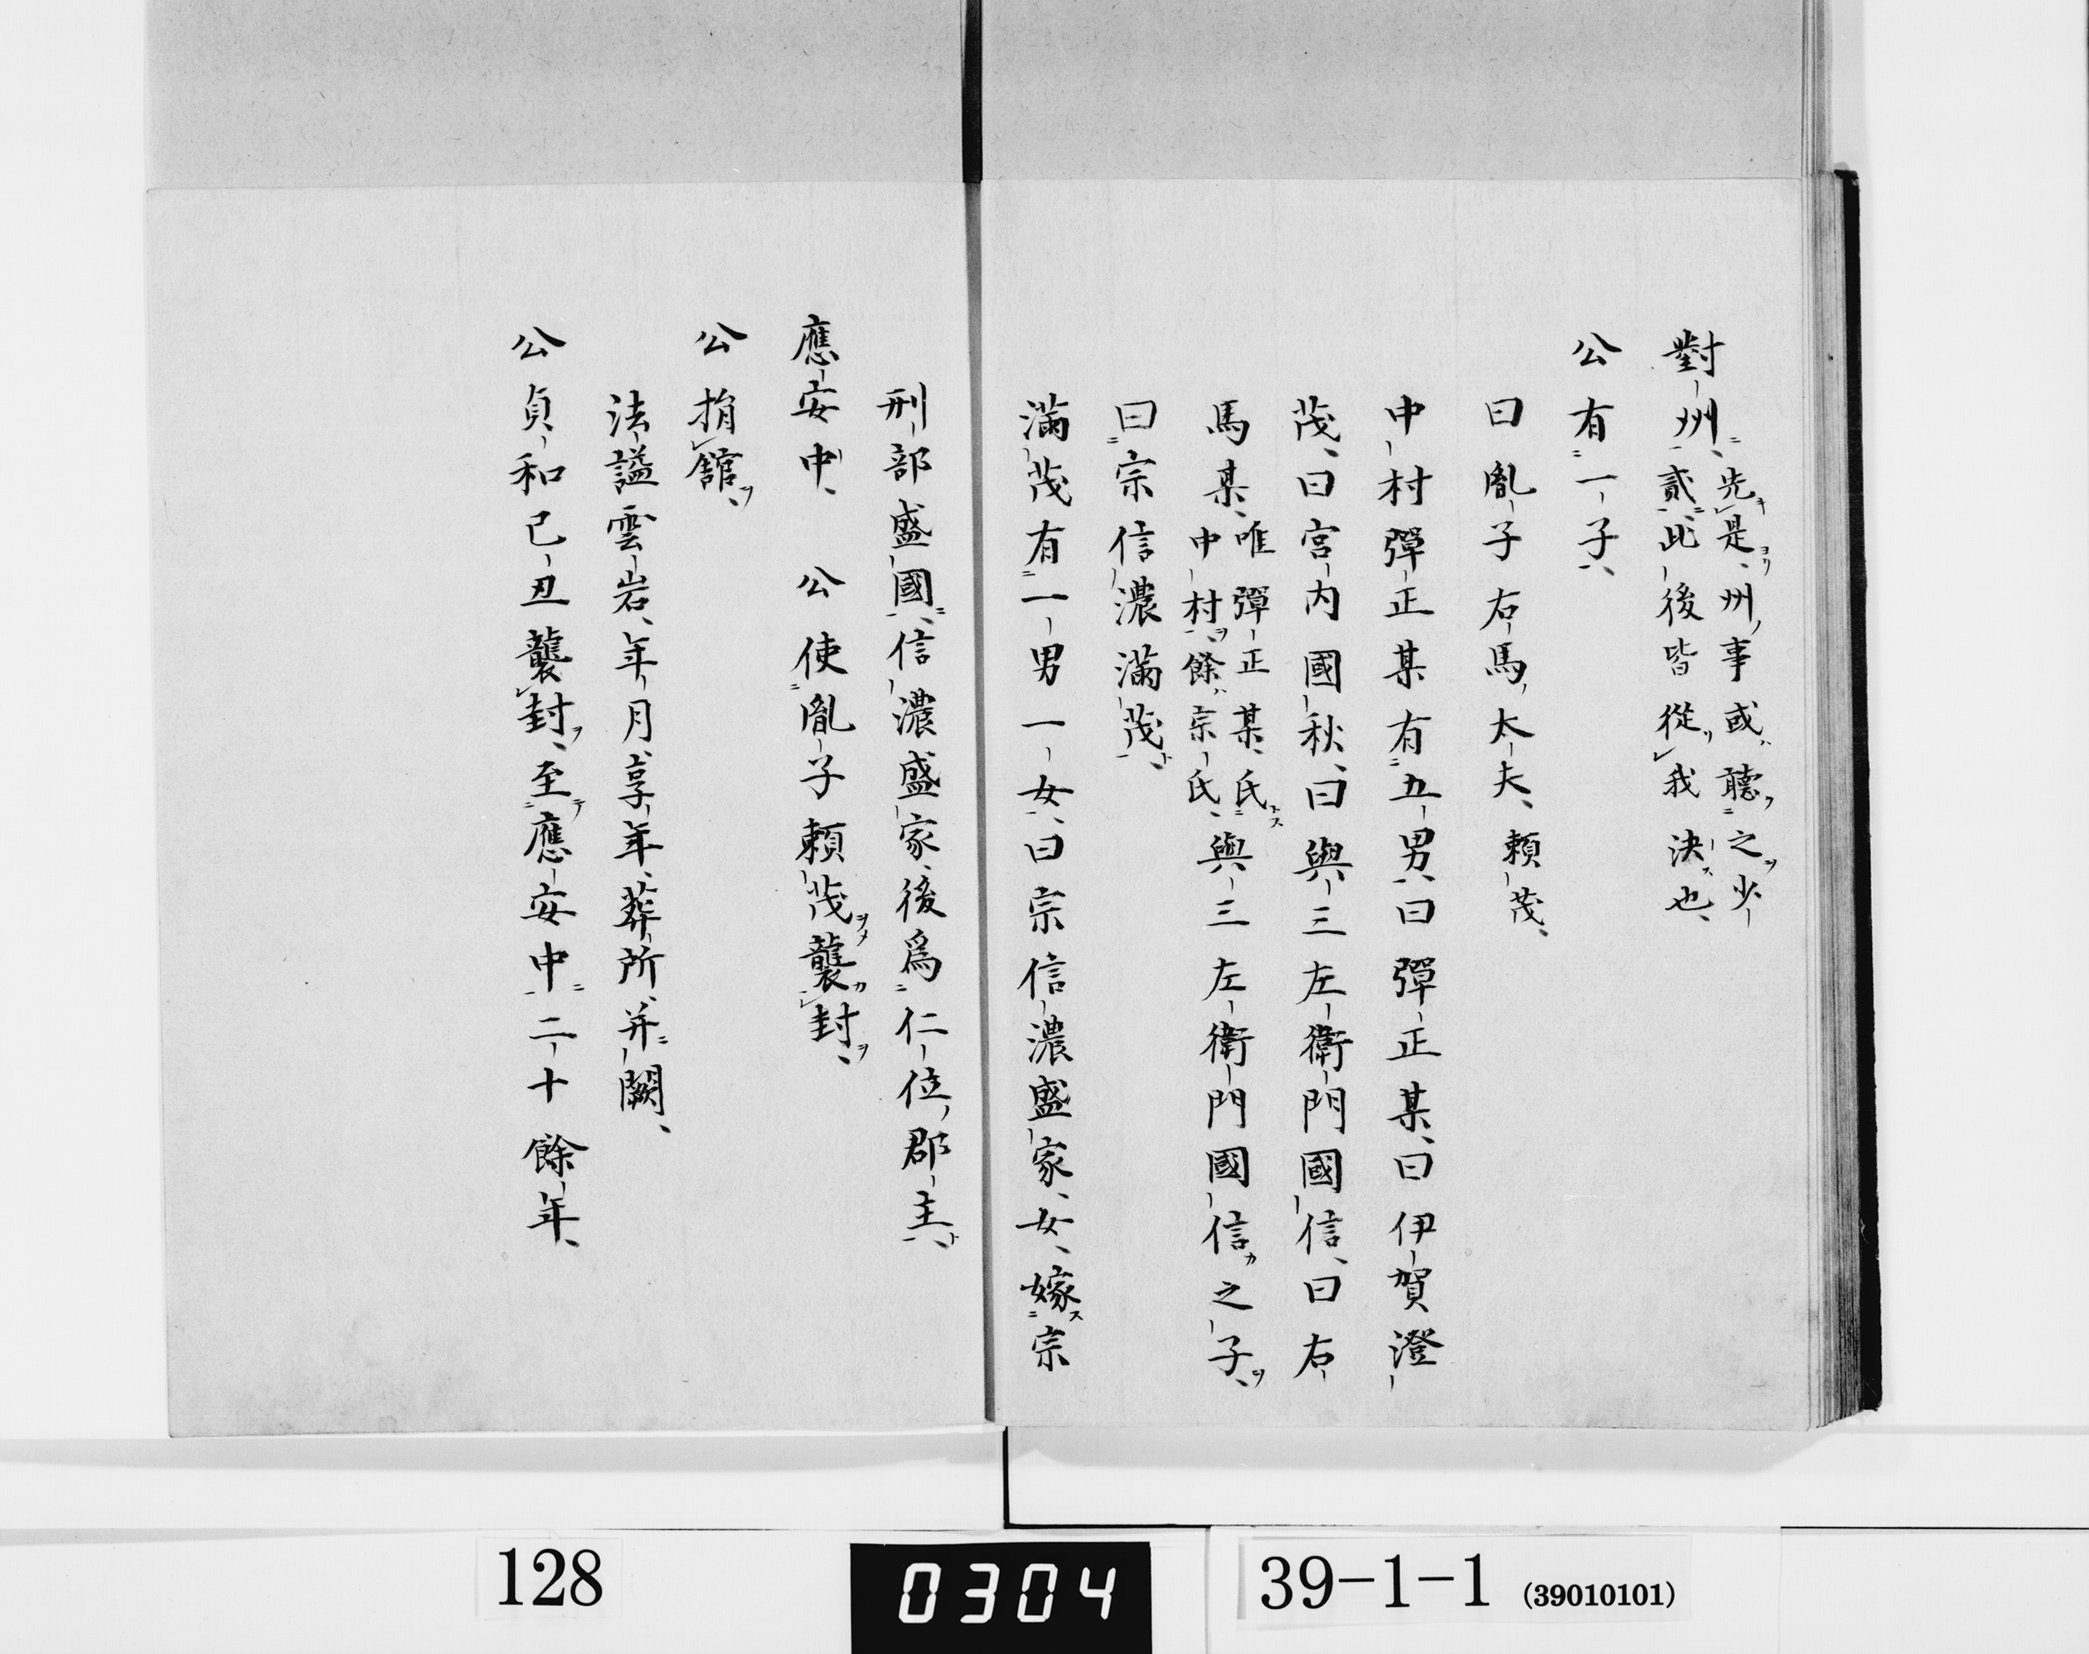 對州先是州事或聽之少
貳此後皆從我決也
公有一子
曰胤子右馬太夫頼茂
中村彈正某有五男曰彈正某曰伊賀澄
茂曰宮内國秋曰與三左衛門國信曰右
馬某唯彈正某氏
中村餘宗氏與三左衛門國信之子
曰宗信濃滿茂
滿茂有一男一女曰宗信濃盛家女嫁宗
刑部盛國信濃盛家後爲仁位郡主
應安中 公使胤子頼茂襲封
公捐舘
法謚雲岩年月享年葬所并闕
公貞和己丑襲封至應安中二十餘年
128
0304
39-1-1 (39010101)